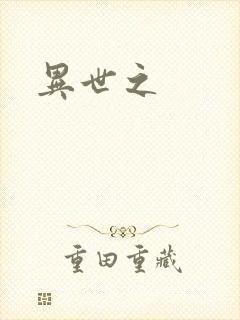 異世之
重田重藏